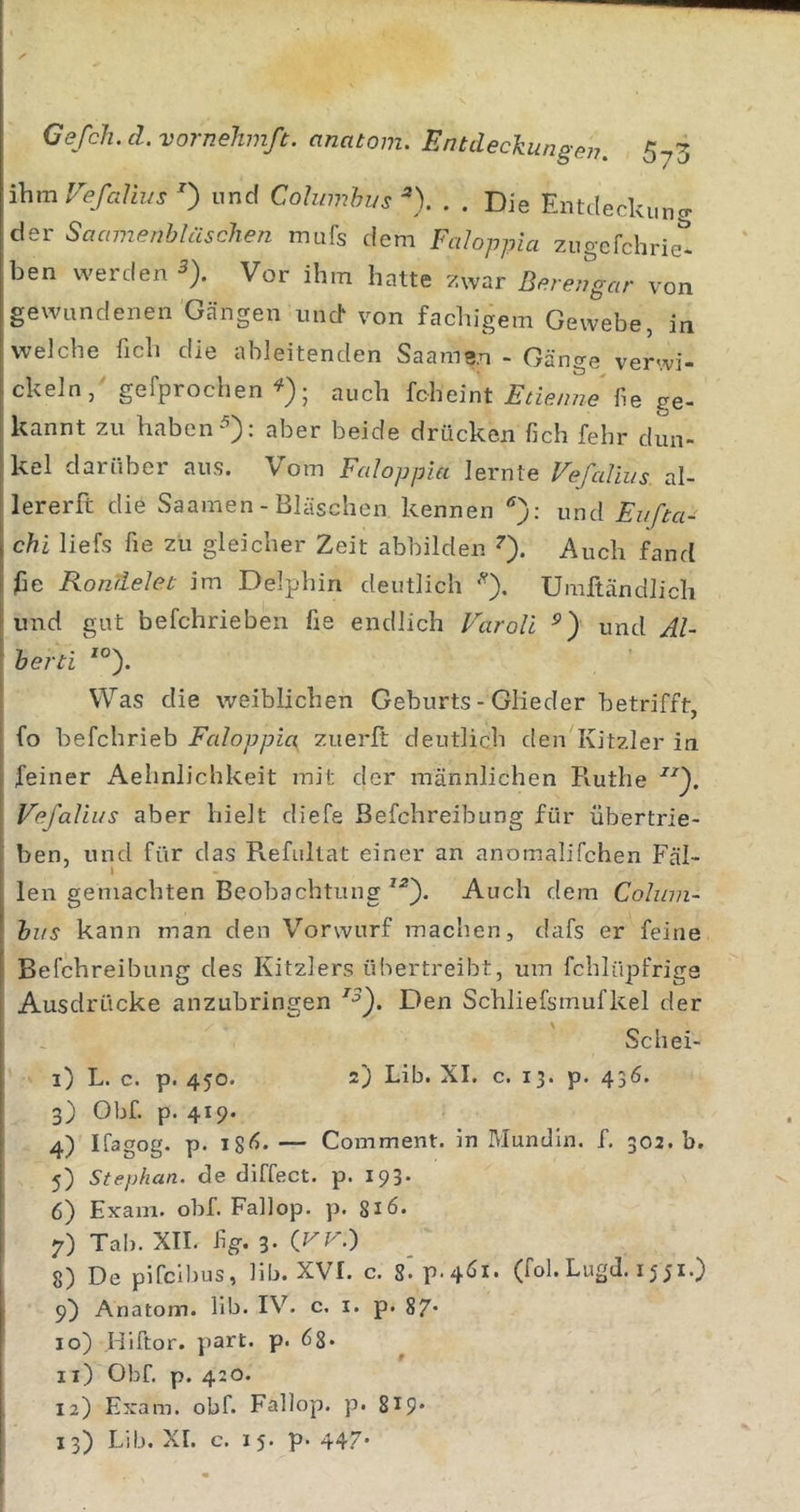 Gefch. d. vornehmft. anatom. Entdeckungen. 573
ihm Vefalius 1) und Columbus 2). . . Die Entdeckung
der Saamenbläschen mufs dem Faloppia zugefchrie-
ben werden 3). Vor ihm hatte zwar Berengar von
gewundenen Gängen und von fachigem Gewebe, in
welche fich die ableitenden Saamen - Gänge verwi-
ckeln, gefprochen 4); auch fcheint Etienne fie ge-
kannt zu haben 5): aber beide drücken fich fehr dun-
kel darüber aus. Vom Faloppia lernte Vefalius al-
lererft die Saamen - Bläschen kennen 6): und Eufta-
chi liefs fie zu gleicher Zeit abbilden 7). Auch fand
fie Rondelet im Delphin deutlich 8). Umftändlich
und gut befchrieben fie endlich Varoli 9) und Al-
berti 10).
Was die weiblichen Geburts - Glieder betrifft,
fo befchrieb Faloppia zuerft deutlich den Kitzler in
feiner Aehnlichkeit mit der männlichen Ruthe 11).
Vefalius aber hielt diefe Befchreibung für übertrie-
ben, und für das Refultat einer an anomalifchen Fäl-
len gemachten Beobachtung 12). Auch dem Colum-
bus kann man den Vorwurf machen, dafs er feine
Befchreibung des Kitzlers übertreibt, um fchlüpfrige
Ausdrücke anzubringen 13). Den Schliefsmufkel der
Schei-
1) L. c. p. 450. 2) Lib. XI. c. 13. p. 436.
3) Obf. p. 419.
4) Ifagog. p. 186. — Comment. in Mundin. f. 302. b.
5) Stephan. de diffect. p. 193.
6) Exam. obf. Fallop. p. 816.
7) Tab. XII. fig. 3. (VV.)
8) De pifcibus, lib. XVI. c. 8. p. 461. (fol. Lugd. 1551.)
9) Anatom. lib. IV. c. 1. p. 87.
10) Hiftor. part. p. 68.
11) Obf. p. 420.
12) Exam. obf. Fallop. p. 819.
13) Lib. XI. c. 15. p. 447.